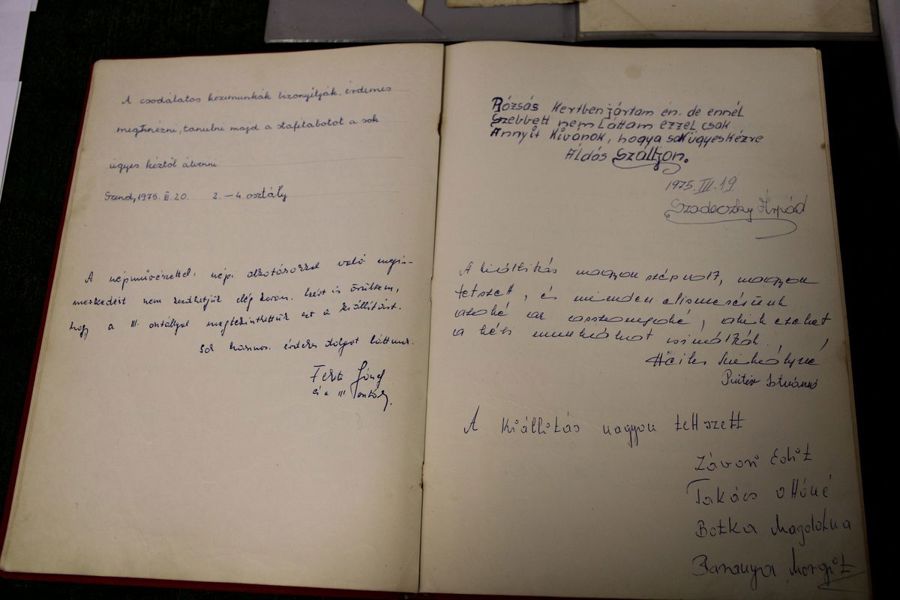 A csodálatos kézimunkák bizonyítják, érdemes
megnézni, tanulni majd a stafétabotot a sok
ügyes kéztől átvenni.
1975. III. 20. 2.-4 osztály
A népművészettel, népi alkotásokkal való megis-
merkedést nem kezdhetjük elég korán. Ezért is örültem,
hogy a III. osztállyal megtekinthettük ezt a kiállítást.
Sok hasznos, érdekes dolgot láttunk.
József
és a III. osztály.
Rózsás Kertben jártam én, de ennél
Szebbett nem láttam ezzel csak
Annyit Kivánok, hogy a sok ügyes kézre
Áldás Szálljon.
1975. III. 19
Szadeczky Árpád
A kiállítás nagyon szép volt, nagyon
tetszett, és minden elismerésünk
azoké az asszonyoké, akik ezeket
a kézi munkákat csinálták.
Istvánné
A kiállítás nagyon tettszett
Závori Edit
Takács Ottóné
Botka Magdolna
Baranyai Margit